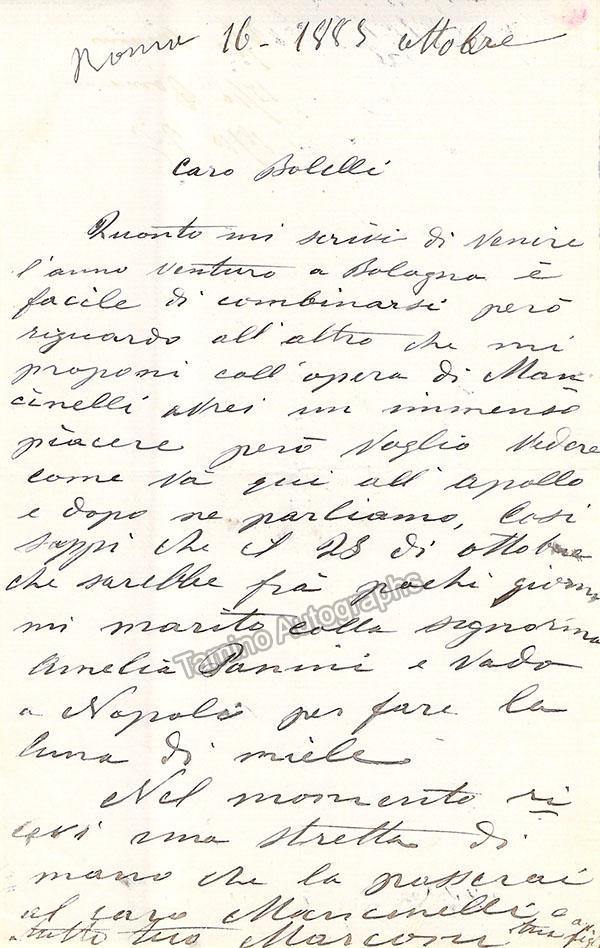 Roma 16 - 1885 ottobre
Caro Bolelli
Quonto mi scrivi di venire
l'anno venturo a Bologna è
facile di combinarsi però
riguardo all'altro che mi
proponi coll'opera di Man
cinelli avrei un immenso
piacere però voglio vedere
come và qui all'apollo
e dopo ne parliamo, Cosi
sappi che il 28 di ottobre
che sarebbe frà pochi giorni
mi marito colla signorina
Amelia Panini e vado
a Napoli per fare la
luna di miele
Nel momento ri
cevi una stretta di
mano che la passerai
al caro Mancinelli e
tutto tuo Marconi
Tamino Autographs